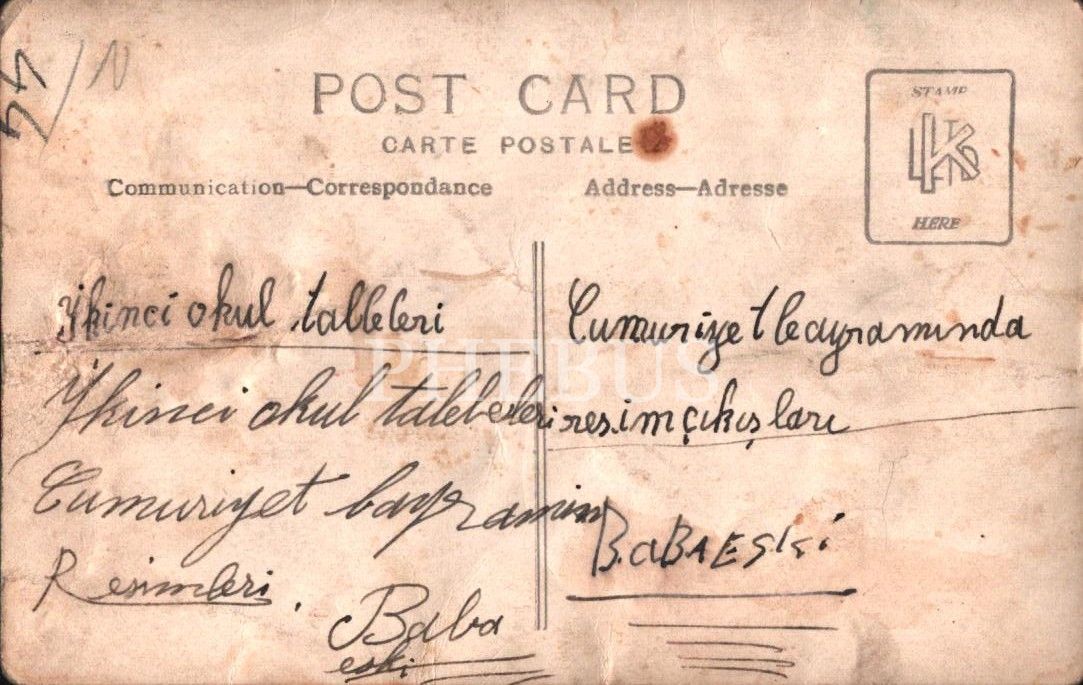 44/N
POST CARD
CARTE POSTALE
Communication—Correspondance
Address—Adresse
STAMP
HERE
İkinci okul talleleri
İkinci okul talebeleri
Cumuriyet bayramının
Resimleri.
Baba
eski
Cumuriyet bayramında
resim çıkışları
BABAESKi
PHEBUS